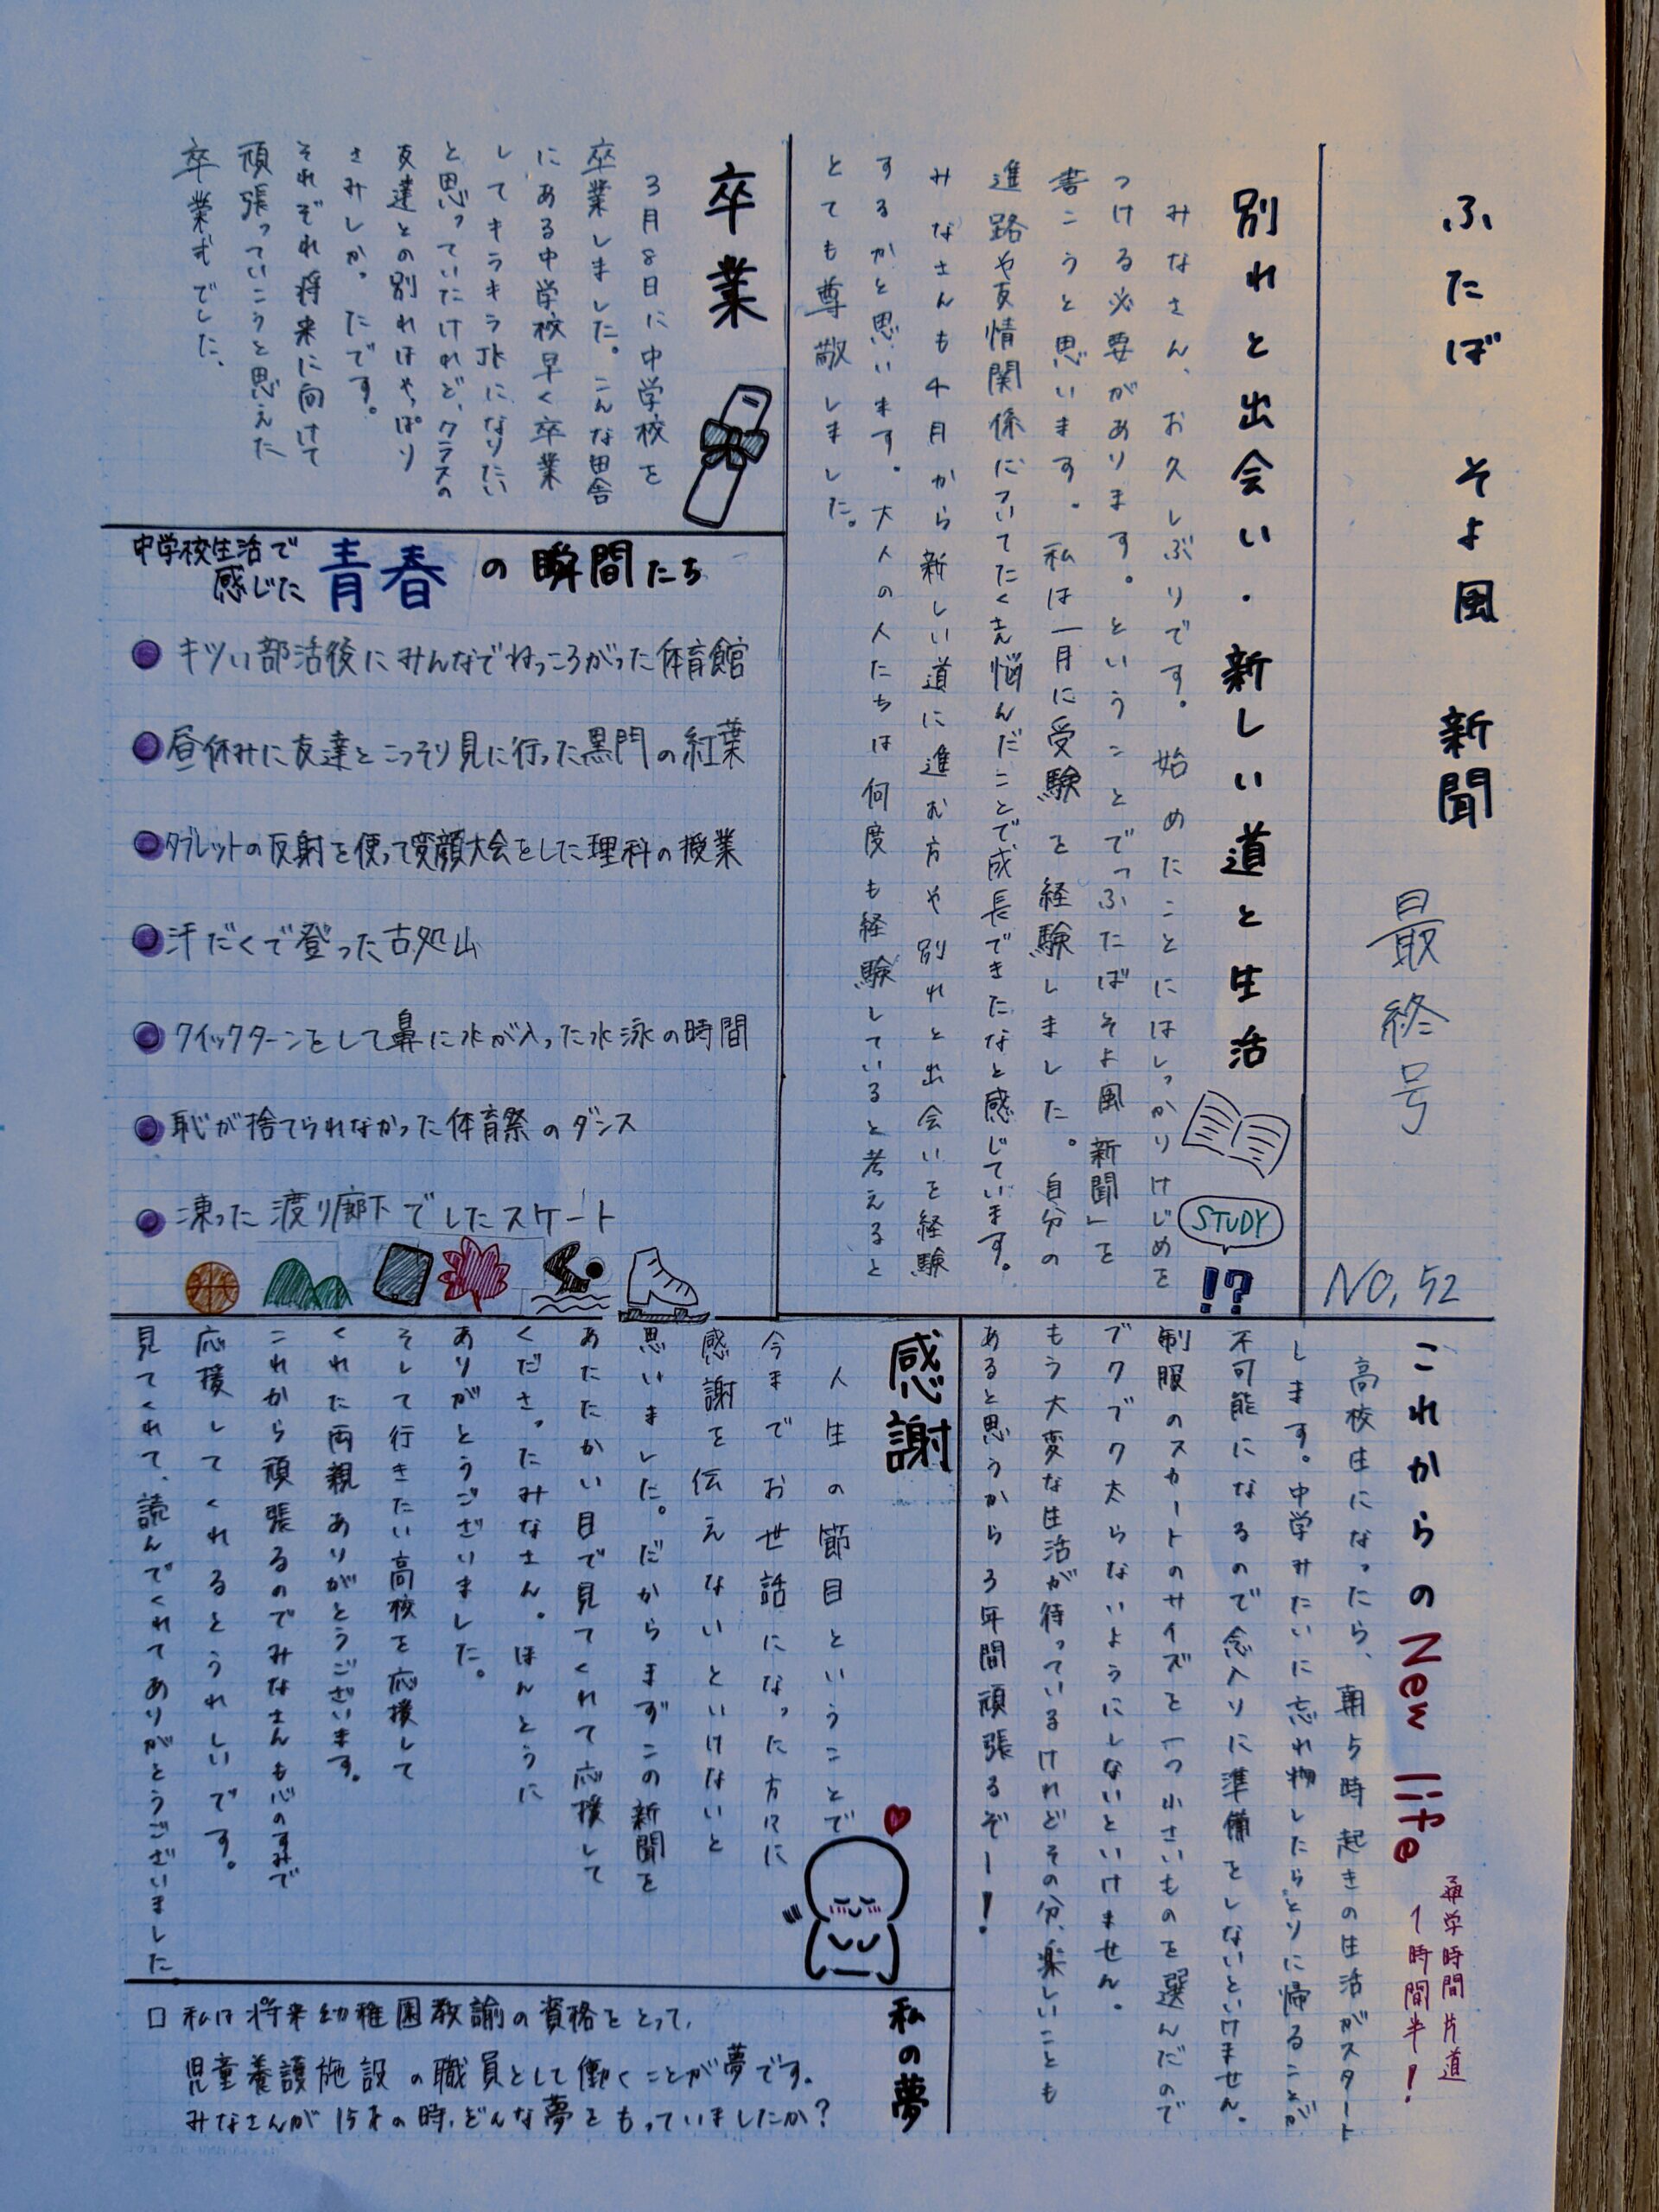 ふたば そよ風 新聞 最終号
NO, 52
別れと出会い・新しい道と生活
みなさん、お久しぶりです。始めたことにはしっかりけじめを
つける必要があります。ということで「ふたばそよ風新聞」を
書こうと思います。私は一月に受験を経験しました。自分の
進路や友情関係についてたくさん悩んだことで成長できたなと感じています。
みなさんも4月から新しい道に進む方や別れと出会いを経験
するかと思います。大人の人たちは何度も経験していると考えると
とても尊敬しました。
STUDY
!?
卒業
3月8日に中学校を
卒業しました。こんな田舎
にある中学校早く卒業
してキラキラJKになりたい
と思っていたけれど、クラスの
友達との別れはやっぱり
さみしかったです。
それぞれ将来に向けて
頑張っていこうと思えた
卒業式でした、
中学校生活で
感じた 青春 の瞬間たち
キツい部活後にみんなでねっころがった体育館
昼休みに友達とこっそり見に行った黒門の紅葉
タブレットの反射を使って変顔大会をした理科の授業
汗だくで登った古処山
クイックターンをして鼻に水が入った水泳の時間
恥が捨てられなかった体育祭のダンス
凍った渡り廊下でしたスケート
これからのNew life
通学時間片道
1時間半!
高校生になったら、朝5時起きの生活がスタート
します。中学みたいに忘れ物したらとりに帰ることが
不可能になるので念入りに準備をしないといけません。
制服のスカートのサイズを一つ小さいものを選んだので
ブクブク太らないようにしないといけません。
もう大変な生活が待っているけれどその分、楽しいことも
あると思うから3年間頑張るぞー!
感謝
人生の節目ということで
今までお世話になった方々に
感謝を伝えないといけないと
思いました。だからまずこの新聞を
あたたかい目で見てくれて応援して
くださったみなさん。ほんとうに
ありがとうございました。
そして行きたい高校を応援して
くれた両親ありがとうございます。
これから頑張るのでみなさんも心のすみで
応援してくれるとうれしいです。
見てくれて、読んでくれてありがとうございました
私の夢
□ 私は将来幼稚園教諭の資格をとって、
児童養護施設の職員として働くことが夢です。
みなさんが15才の時、どんな夢をもっていましたか?